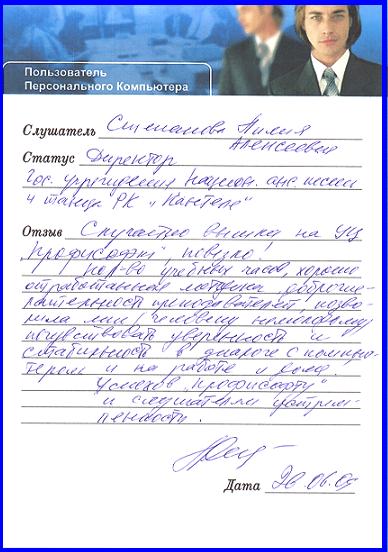 Пользователь
Персонального Компьютера
Слушатель Степанова Лилия
Алексеевна
Статус Директор
Гос. учреждения Национ. анс. песни
и танца РК „Кантеле"
Отзыв Случайно вышла на УЦ
„Профисофт", повезло!
Кол-во учебных часов, хорошо
отработанная методика, доброже-
лательность преподавателей, позво-
лила мне, человеку немолодому
почувствовать уверенность и
стабильность в диалоге с компью-
тером и на работе и дома.
Успехов „Профисофту"
и слушателям устрем-
ленности.
Дата 20.06.05